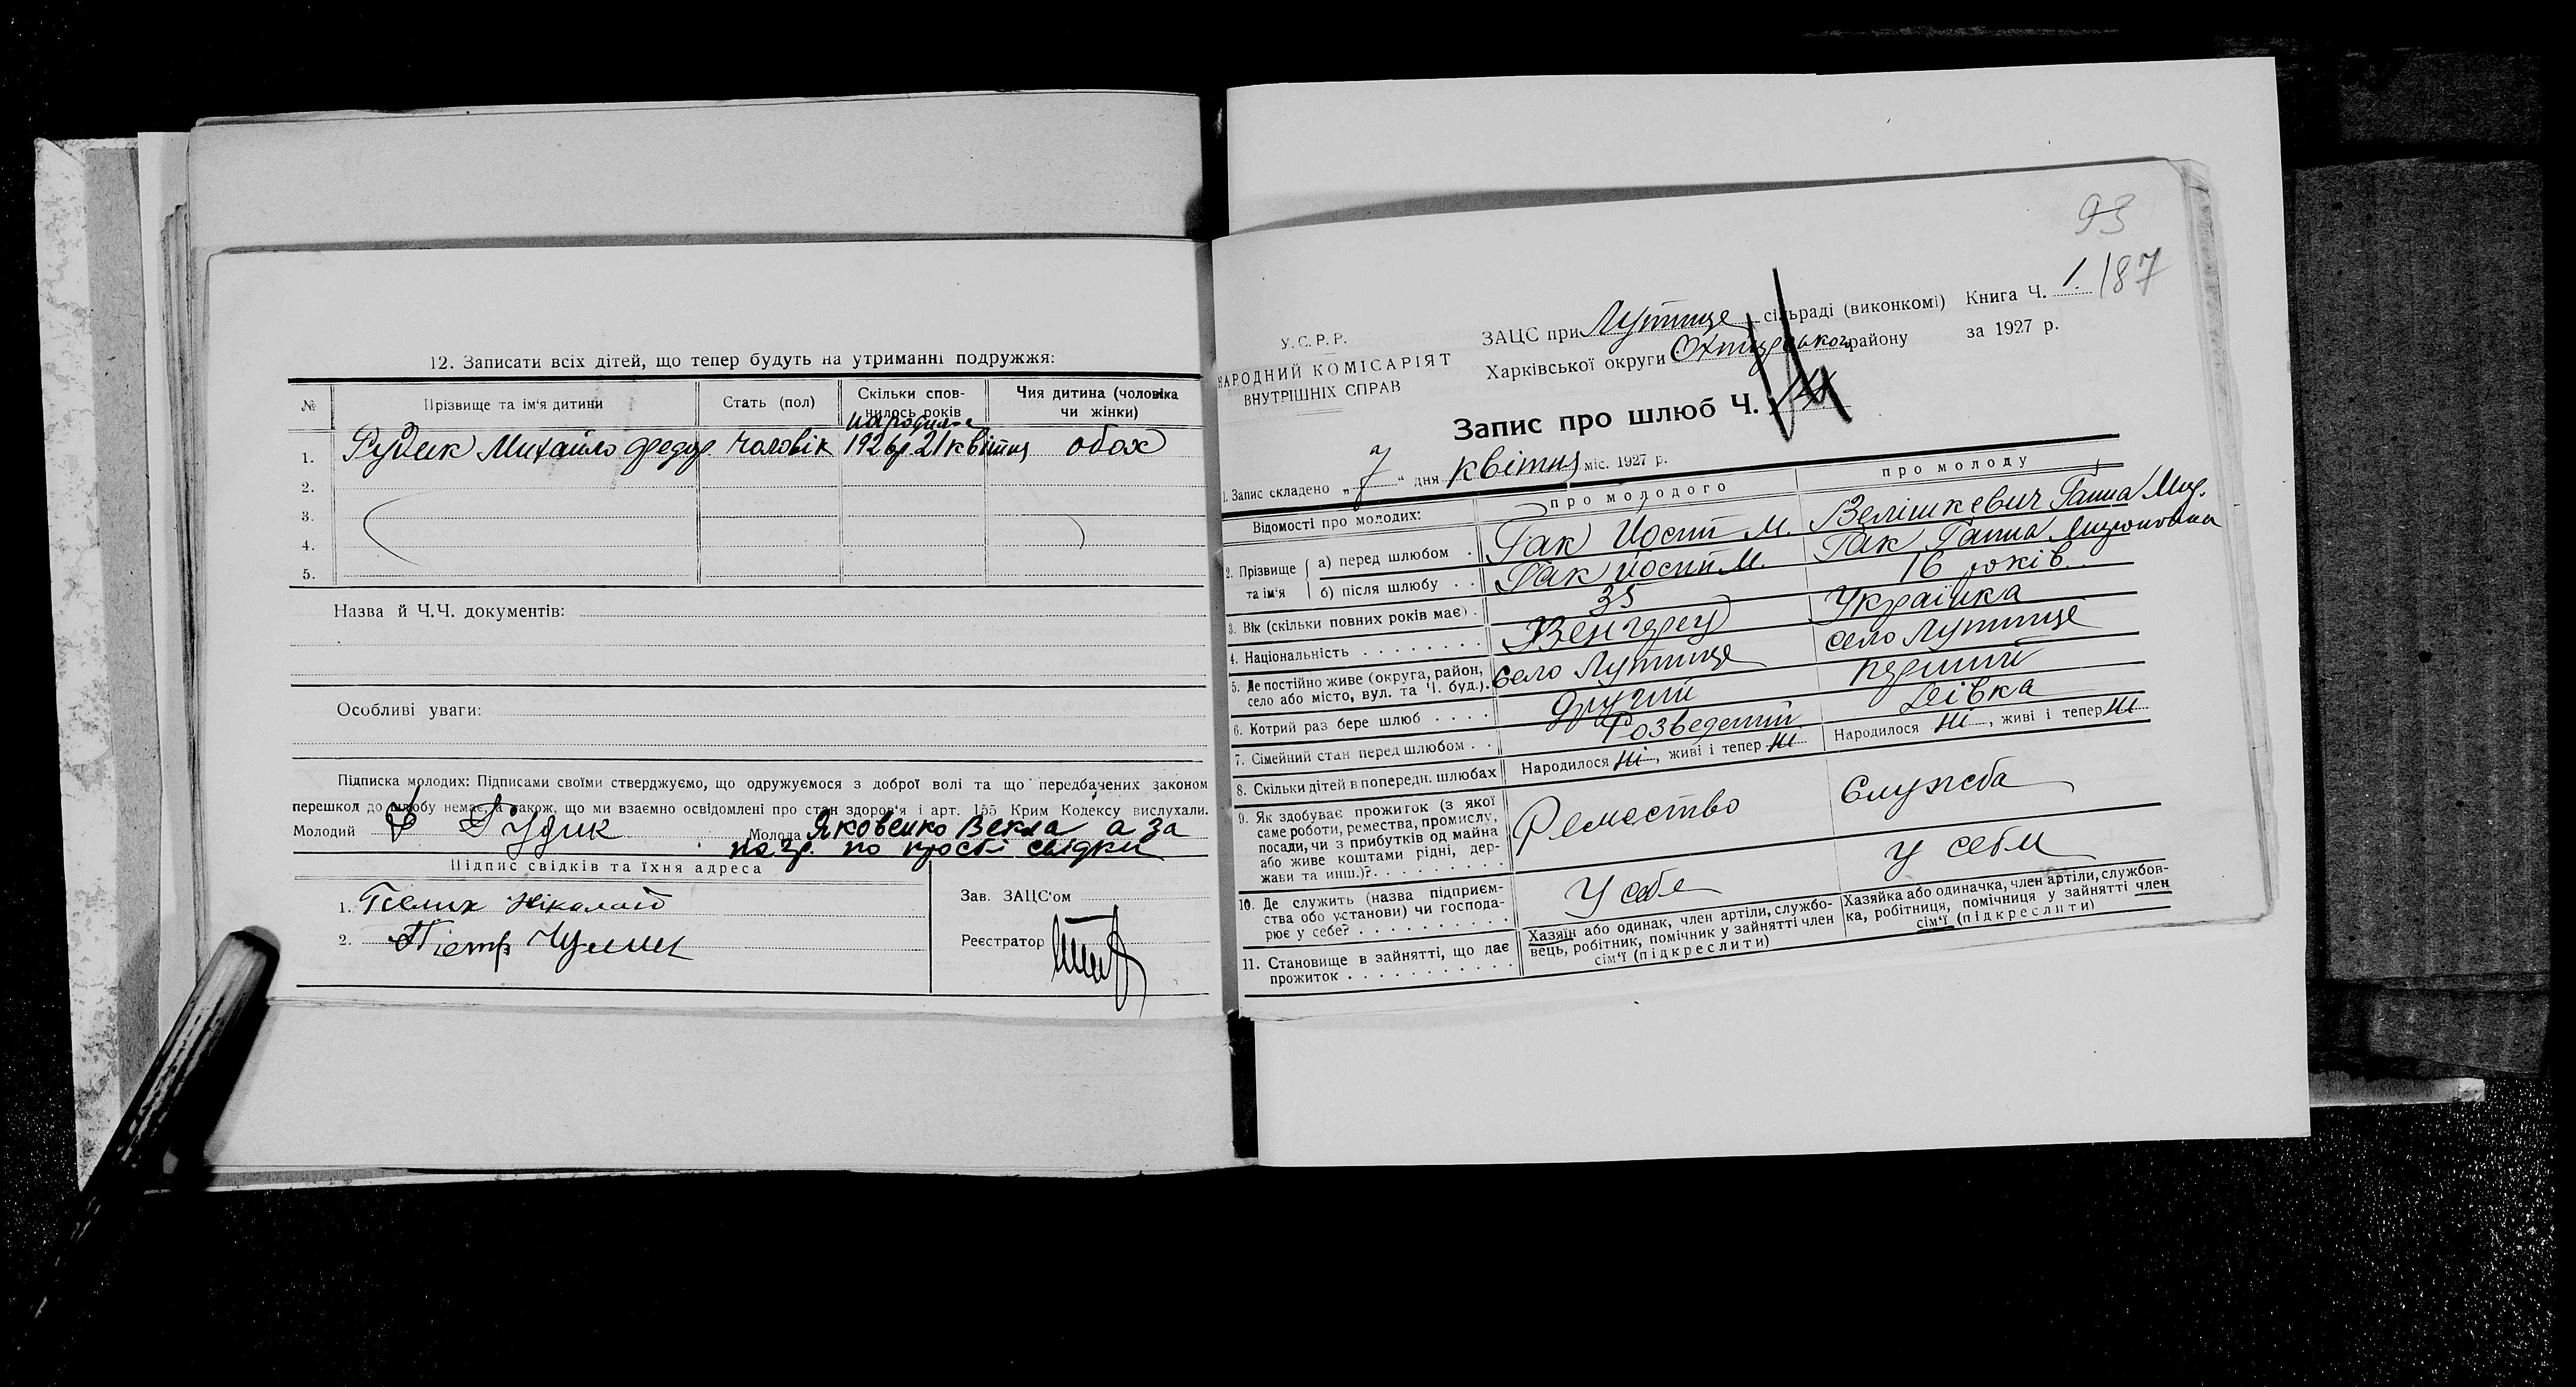 12. Записати всіх дітей, що тепер будуть на утриманні подружжя:
№ Прізвище та ім'я дитини Стать (пол) Скільки спов-нилось років Чия дитина (чоловіка чи жінки)
народився
1. Рудик Михайло Федор чоловік 1926р 21 квітня обох
2.
3.
4.
5.
Назва й Ч.Ч. документів:
Особливі уваги:
Підписка молодих: Підписами своїми стверджуємо, що одружуємося з доброї волі та що передбачених законом
перешкод до шлюбу немає, а також, що ми взаємно освідомлені про стан здоров'я і арт. 155 Крим Кодексу вислухали.
Молодий Ф Рудик Молода Яковенко Векла а за
по просьбі свідки
Підпис свідків та їхня адреса
1. Ніколай
2. Пєтр
Зав. ЗАЦС'ом
Реєстратор
93
187
У.С.Р.Р.
НАРОДНИЙ КОМІСАРІЯТ
ВНУТРІШНІХ СПРАВ
ЗАЦС при Лутище сільраді (виконкомі) Книга Ч. 1.
Харківської округи Охтирського району за 1927 р.
Запис про шлюб Ч.
1. Запис складено „7“ дня квітня міс. 1927 р.
Відомості про молодих: про молодого про молоду
2. Прізвище та ім'я
а) перед шлюбом . Гак Йосип М. Велішкевич Ганна Мир.
б) після шлюбу . . Гак Йосип М. Гак Ганна Мироновна
3. Вік (скільки повних років має) . 35 16 років
4. Національність . . . . . . . . Венгрец Українка
5. Де постійно живе (округа, район,
село або місто, вул. та Ч. буд.). Село Лутище село Лутище
6. Котрий раз бере шлюб . . . . другий перший
7. Сімейний стан перед шлюбом . . Розведений Дівка
8. Скільки дітей в попередн. шлюбах Народилося ні, живі і тепер ні Народилося ні, живі і тепер ні
9. Як здобуває прожиток (з якої
саме роботи, ремества, промислу,
посади, чи з прибутків од майна
або живе коштами рідні, дер-
жави та инш.)?. . . . . . . . Ремество Служба
10. Де служить (назва підприєм-
ства обо установи) чи господа-
рює у себе? . . . . . . . . . У себе У себи
11. Становище в зайнятті, що дає
прожиток . . . . . . . . . . .
Хазяїн або одинак, член артіли, службо-
вець, робітник, помічник у зайнятті член
сім'ї (підкреслити)
Хазяйка або одиначка, член артіли, службов-
ка, робітниця, помічниця у зайнятті член
сім'ї (підкреслити)